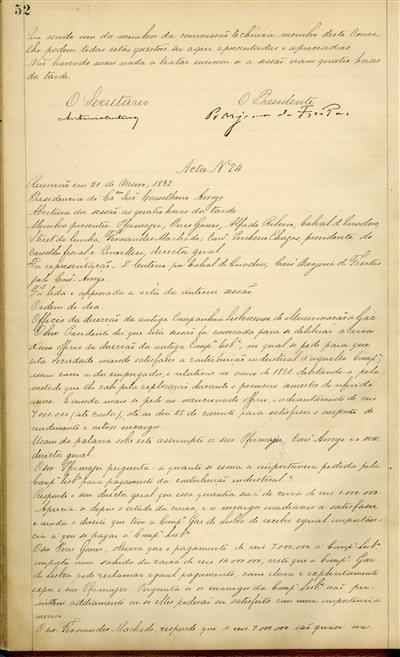 52
que sendo um dos membros da commissão technica membro deste Conse-
lho podem todas estas questões ser aqui apresentadas e apreciadas
Não havendo mais nada a tratar encerrou-se a sessão eram quatro horas
da tarde
O Secretario O Presidente
Acta Nº 24
Reunião em 21 de Março, 1892
Presidencia do Exmo Snr Conselheiro Arroyo
Abertura da sessão ás quatro horas da tarde
Membros presentes Ofremajor, Pires Gomes, Alfredo Ribeiro, Cabral de
Street da Cunha, Fernandes Machado, Pinheiro Chagas, presidente do
conselho fiscal e director geral
Fez representação por Cabral de de Freitas
pelo Consº Arroyo
Foi lida e approvada a acta da anterior sessão
Ordem do dia
Officio da direcção da antiga Companhia Lisbonense de Illuminação a Gaz
O Snr Presidente diz que esta sessão foi convocada para se deliberar acerca
d'um officio da direcção da antiga Compª Lisbª no qual se pede para que
esta Sociedade mande satisfazer a contribuição industrial d'aquella Compª
assim como a do empregados, e relativa ao anno de 1891 debitando-a pela
metade que lhe cabe pela exploração durante o primeiro semestre do referido
anno. E ainda mais se pede no mencionado officio, o adeantamento de reis
7.000.000 (sete contos), até ao dia 25 do corrente para satisfazer o imposto de
rendimento e outros encargos
Usam da palavra sobre este assumpto os snrs Ofremajor, Consº Arroyo e o snr
director geral
O snr Ofremajor pergunta a quanto se somma a importancia pedida pela
Compª Lisbª para pagamento da contribuição industrial?
Responde o snr director geral que essa quantia será de cerca de reis 1.000.000.
Aprecia-se depois o estado da caixa, e os encargos inadiaveis a satisfazer
e ainda o direito que tem a Compª Gaz de Lisboa de receber egual importan-
cia á que se pagar á Compª Lisbª
O Snr Pires Gomes, observa que o pagamento de reis 7.000.000 á Compª Lisbª
importa uma sahida de caixa de reis 14.000.000, visto que a Compª Gaz
de Lisboa pode reclamar egual pagamento, como clara e explicitamente
expoz o snr Ofremajor. Pergunta se os encargos da Compª Lisbª não per-
mittem addiamento ou se elles poderão ser satisfeitos com uma importancia
menor
O snr Fernandes Machado, responde que os reis 7.000.000 são quasi na